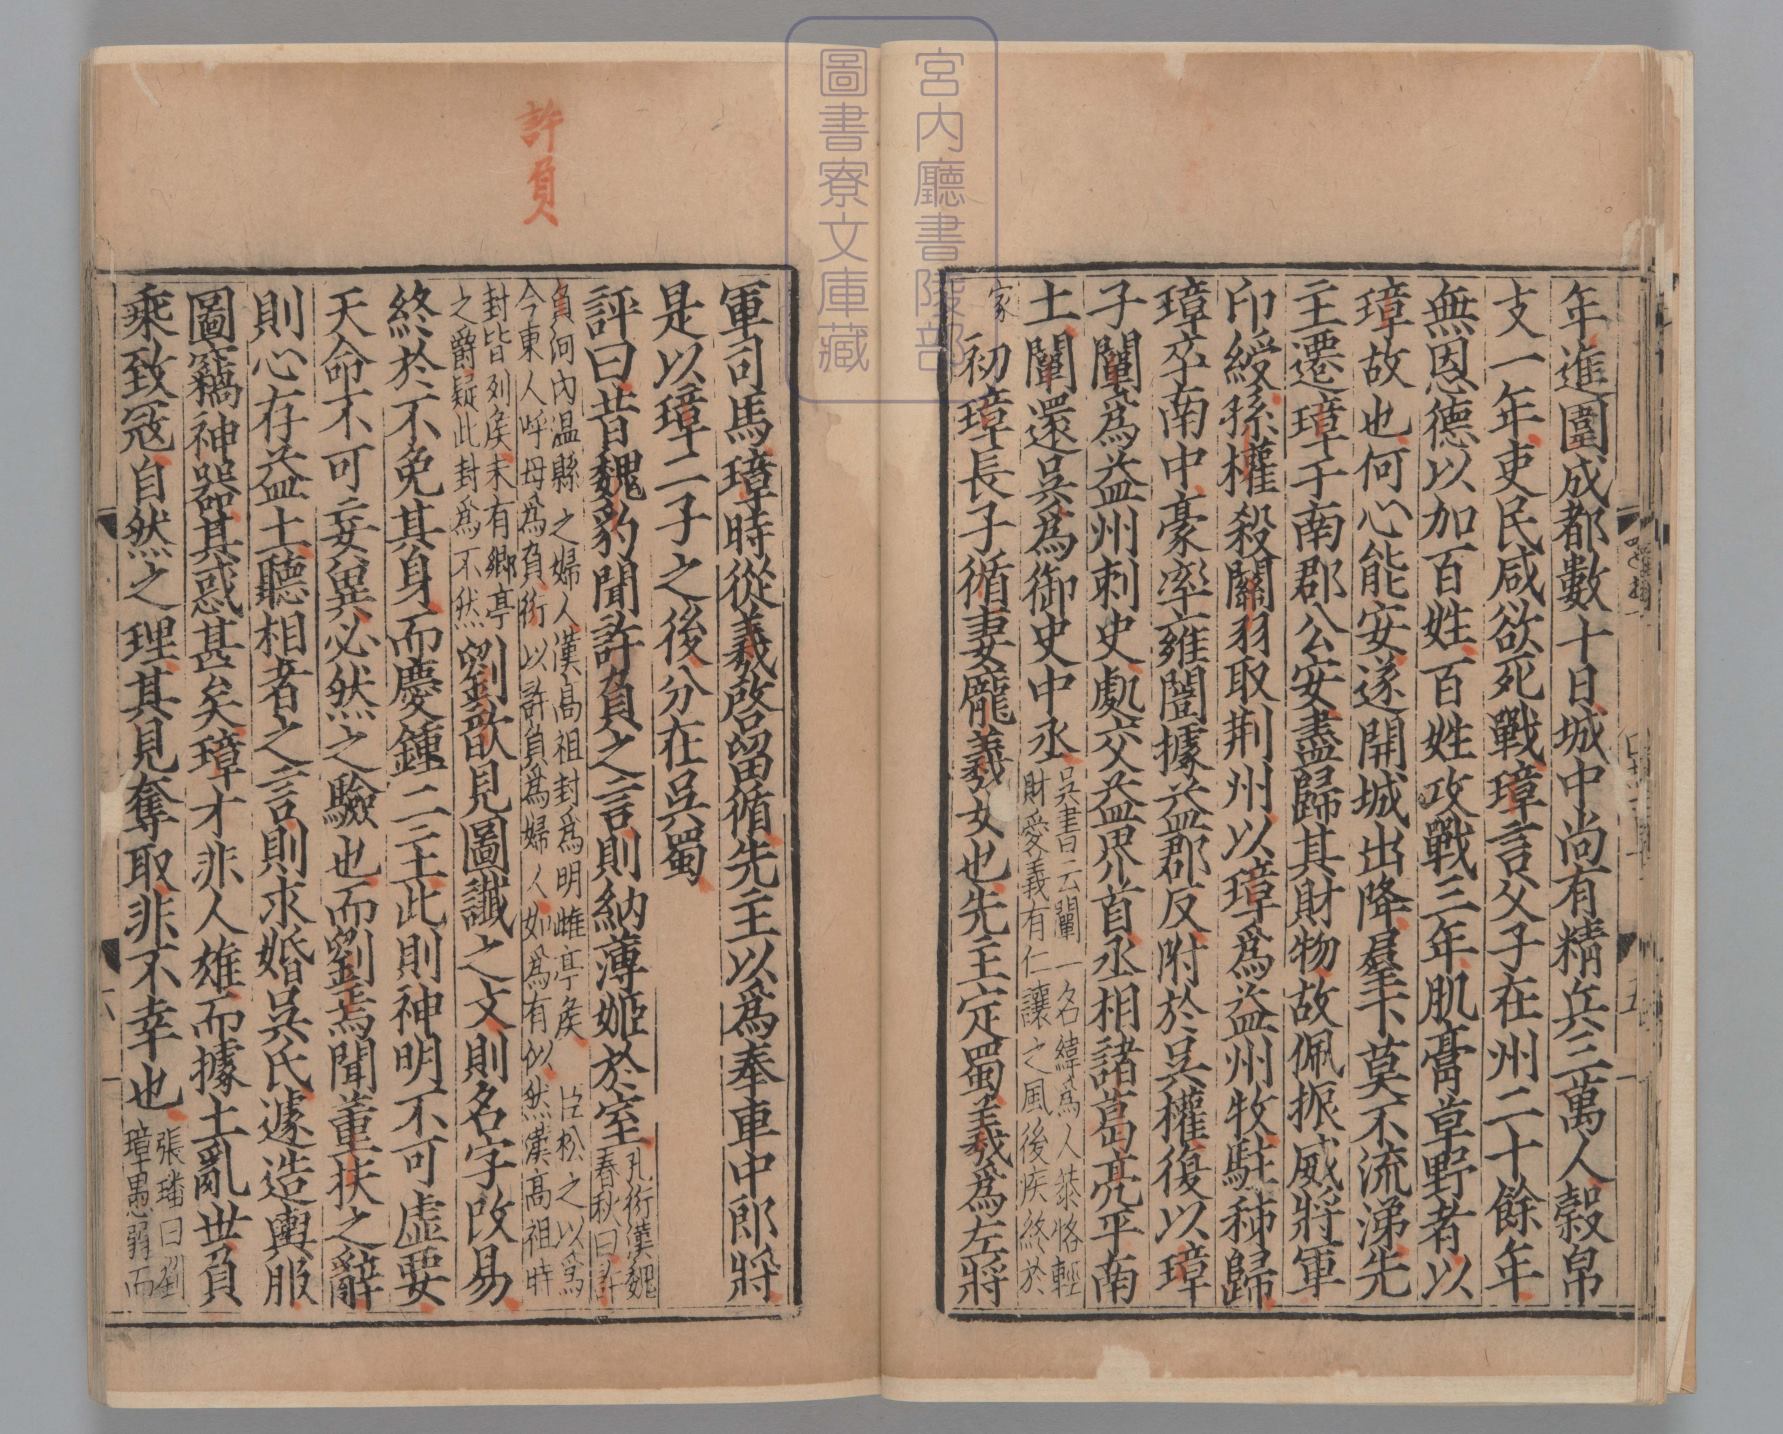 年進圍成都數十日城中尚有精兵三萬人穀帛
支一年吏民咸欲死戰璋言父子在州二十餘年
無恩德以加百姓百姓攻戰三年肌膏草野者以
璋故也何心能安遂開城出降羣下莫不流涕先
主遷璋于南郡公安盡歸其財物故佩振威將軍
印綬孫權殺關羽取荆州以璋爲益州牧駐秭歸
璋卒南中豪率雍闓據益郡反附於吳權復以璋
子闡爲益州刺史處交益界首丞相諸葛亮平南
土闡還吳爲御史中丞吳書云闡一名緯爲人恭恪輕
財愛義有仁讓之風後疾終於
家初璋長子循妻龐羲女也先主定蜀羲爲左將
軍司馬璋時從羲啓留循先主以爲奉車中郎將
是以璋二子之後分在吳蜀
評曰昔魏豹聞許負之言則納薄姬於室孔衍漢魏
春秋曰許
負河内温縣之婦人漢高祖封爲明雌亭矦 臣松之以爲
今東人呼母爲負衍以許負爲婦人如爲有似然漢高祖時
封皆列矦未有鄉亭
之爵疑此封爲不然劉歆見圖讖之文則名字改易
終於不免其身而慶鍾二主此則神明不可虛要
天命不可妄冀必然之驗也而劉焉聞董扶之辭
則心存益土聽相者之言則求婚吳氏遽造輿服
圖竊神器其惑甚矣璋才非人雄而據土亂世負
乘致寇自然之理其見奪取非不幸也張璠曰劉
璋愚弱而
許負
宮内廳書陵部
圖書寮文庫藏